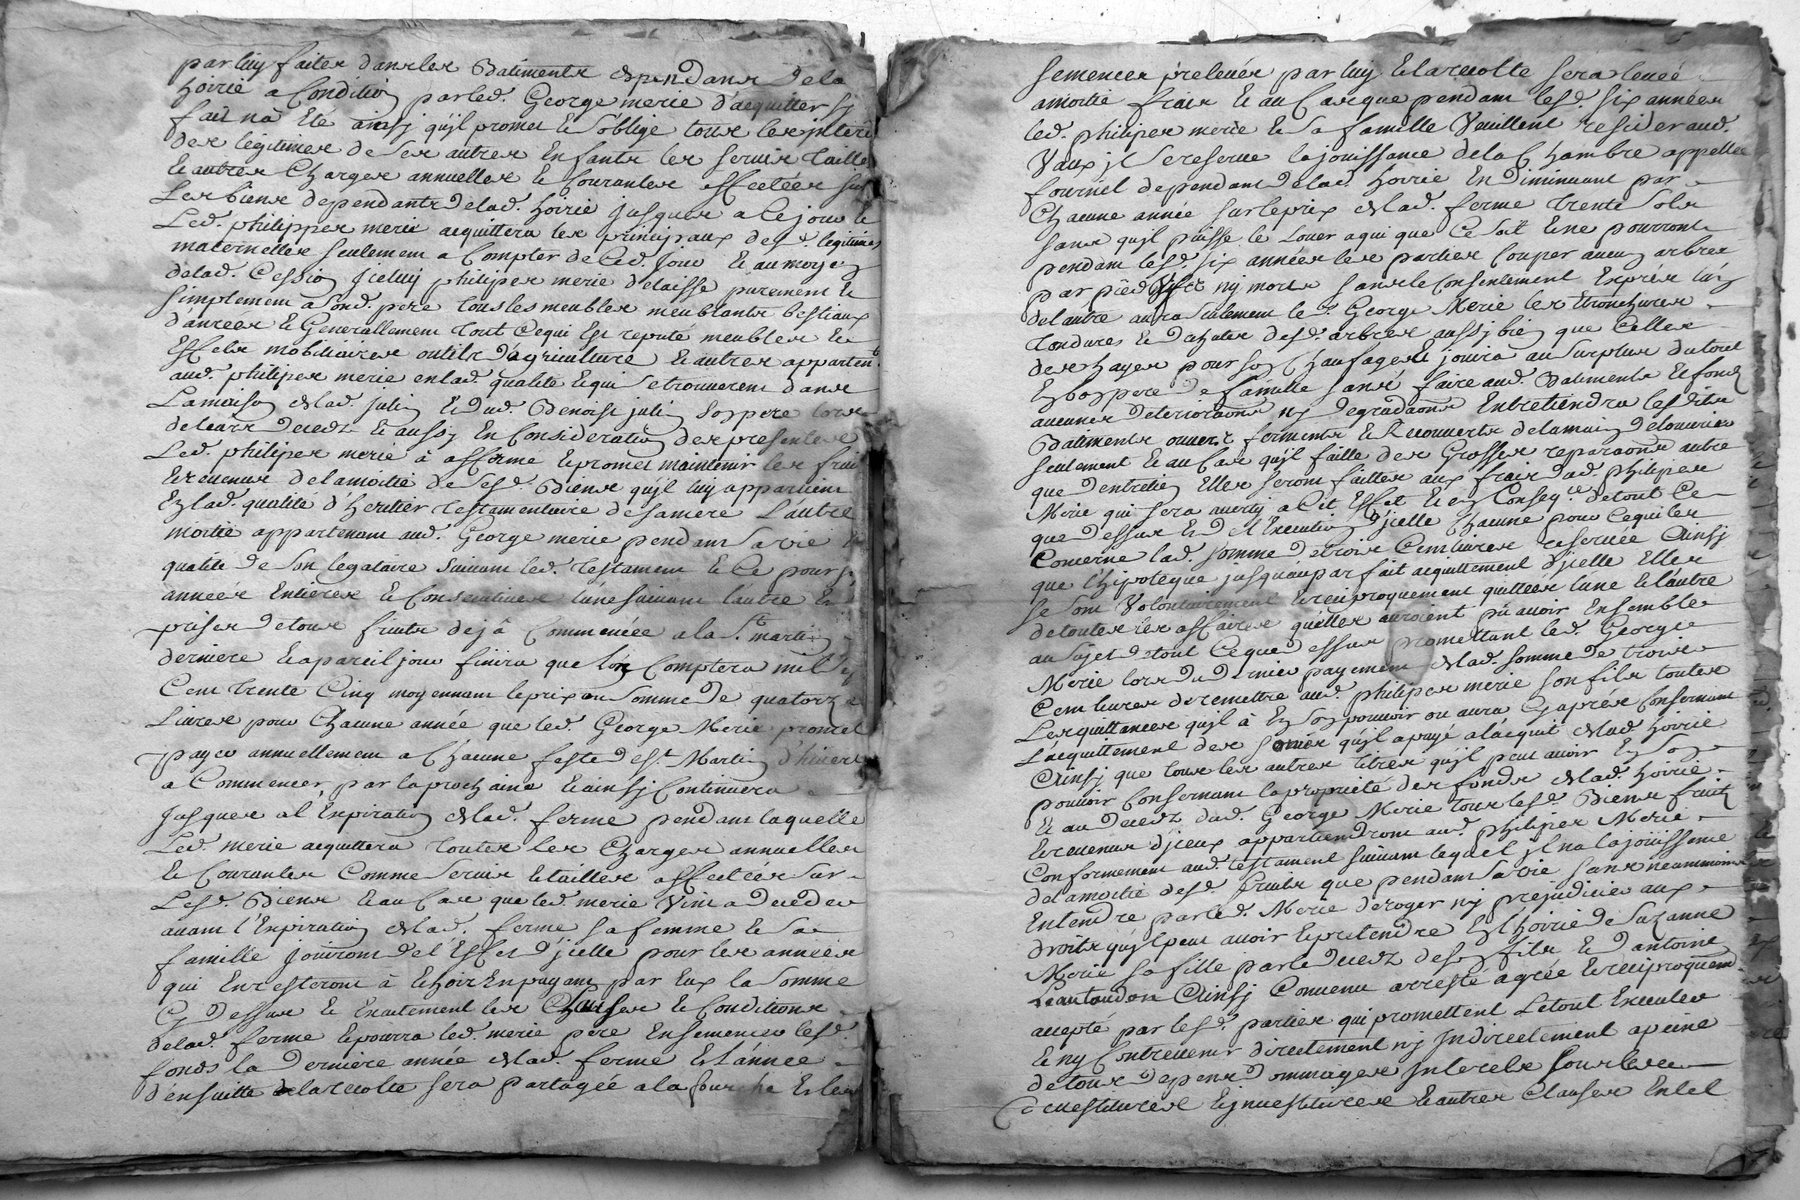 par luy faites dans les Batiments dependans de la
hoirie a Condition par led. George merie d'acquitter sy
fait na ete ainsy qu'il promet & s'oblige tous les interets
des legitimes de ses autres Enfants les servis taille
& autres Charges annuelles & Courantes affectées sur
Les biens dependants de lad. hoirie jusques a Ce jour &
Led. philippes merie acquittera les principaux desd. legitimes
maternelles seulement a Compter de Ced. jour & au moyen
de lad. Cession jceluy philipes merie delaisse purement &
simplement a sond. pere tous les meubles meublants bestiaux
danrées & Generallement tout Ce qui Est reputé meubles &
Effets mobiliaires outils d'agriculture & autres appartent.
aud. philipes merie en lad. qualité & qui se trouverent dans
La maison de lad. julin & dud. Benoist julin son pere lors
de leurs decedz & aussy En Consideration des presentes
Led. philipes merie à afferme & promet maintenir les fruits
& revenus de la moitié de sesd. Biens qu'il luy appartient
En lad. qualité d'heritier testamentaire de sa mere L'autre
moitié appartenant aud. George merie pendant sa vie
qualité de son legataire suivant led. testament & Ce pour
années Entieres & Consecutives l'une suivant l'autre &
prises de tous fruits dejà Commencée a la St. martin
derniere & a pareil jour finira que l'on Comptera mil
Cent trente Cinq moyennant le prix ou somme de quatorze
Livres pour Chacune année que led. George Merie promet
payer annuellement a Chacune feste de st. Martin d'hiver
a Commencer par la prochaine & ainsy Continuera
Jusques a l'Expiration de lad. ferme pendant laquelle
Led. merie acquittera toutes les Charges annuelles
& Courantes Comme servis & tailles affectées sur
Lesd. Biens & au Cas que led. merie Vint a deceder
avant l'Expiration de lad. ferme sa femme & sa
famille jouiront de l'Effet d'jcelle pour les années
qui En resteront à Echoir En payant par Eux la somme
Cy dessus & Exactement les Clauses & Conditions
de lad. ferme & pourra led. merie pere Ensemencer lesd.
fonds la derniere année de lad. ferme & l'année
d'ensuitte & la recolte sera partagée a la fourche & les
semences prelevées par luy & la recolte sera levée
a moitié frais & au Cas que pendant lesd. six années
led. philipes merie & sa famille Veuillent resider aud.
Vaux jl se reserve la jouissance de la Chambre appellée
fournel dependant de lad. hoirie En diminuant par
Chacune année sur le prix de lad. ferme trente sols
sans qu'il puisse le Louer a qui que Ce soit & ne pourront
pendant lesd. six années les parties Couper aucun arbres
par pied vifs ny morts sans le Consentement Exprés l'un
de l'autre aura seulement le d. George Merie les Etronchures
tondures & desd. arbres aussy bien que Celles
des hayes pour son Chaufage & jouira au surplus du tout
En bon pere de famille sans faire aud. Batiments & fonds
aucunes deterioraõns ny degradaõns Entretiendra lesdits
Batiments ouverts fermants & Recouverts de la main de l'ouvrier
seulement & au Cas qu'il faille des Grosses reparaõns autre
que d'entretien Elles seront faittes aux frais dud. philipes
Merie qui sera averty a Cet Effet & En Conseqce. de tout Ce
que dessus & de l'Execution d'jcelle Chacune pour Ce qui les
Concerne lad. somme de trois Cent livres reservée Ainsy
que l'hipoteque jusqu'au parfait acquittement d'jcelle Elles
se sont Volontairement & reciproquement quittées l'une & l'autre
de toutes les affaires qu'elles auroient pû avoir Ensemble
au sujet de tout Ce que dessus promettant led. George
Merie lors du dernier payement de lad. somme de trois
Cent livres de remettre aud. philipes merie son fils toutes
Les quittances qu'il à En son pouvoir ou aura Cy aprés Consernant
L'acquittement des somes qu'il a payé a l'acquit de lad. hoirie
Ainsy que tous les autres titres qu'il peut avoir En son
pouvoir Consernant la proprieté des fonds de lad. hoirie
& au decedz dud. George Merie tous lesd. Biens fruits
& revenus d'jceux appartiendront aud. philipes Merie
Conformement aud. testament suivant lequel jl na la joüissance
de la moitié desd. fruits que pendant sa vie sans neammoins
Entendre par led. Merie deroger ny prejudicier aux
droits qu'il peut avoir & pretendre En l'hoirie de Suzanne
Merie sa fille par le decedz de son fils & d'antoine
Leautaudon Ainsy Convenu arresté agrée & reciproquemt.
accepté par lesd. parties qui promettent Le tout Executer
& ny Contrevenir directement ny Indirectement a peine
de tous depens dommages Interets sous les
devestitures & jnvestitures & autres Clauses En tel